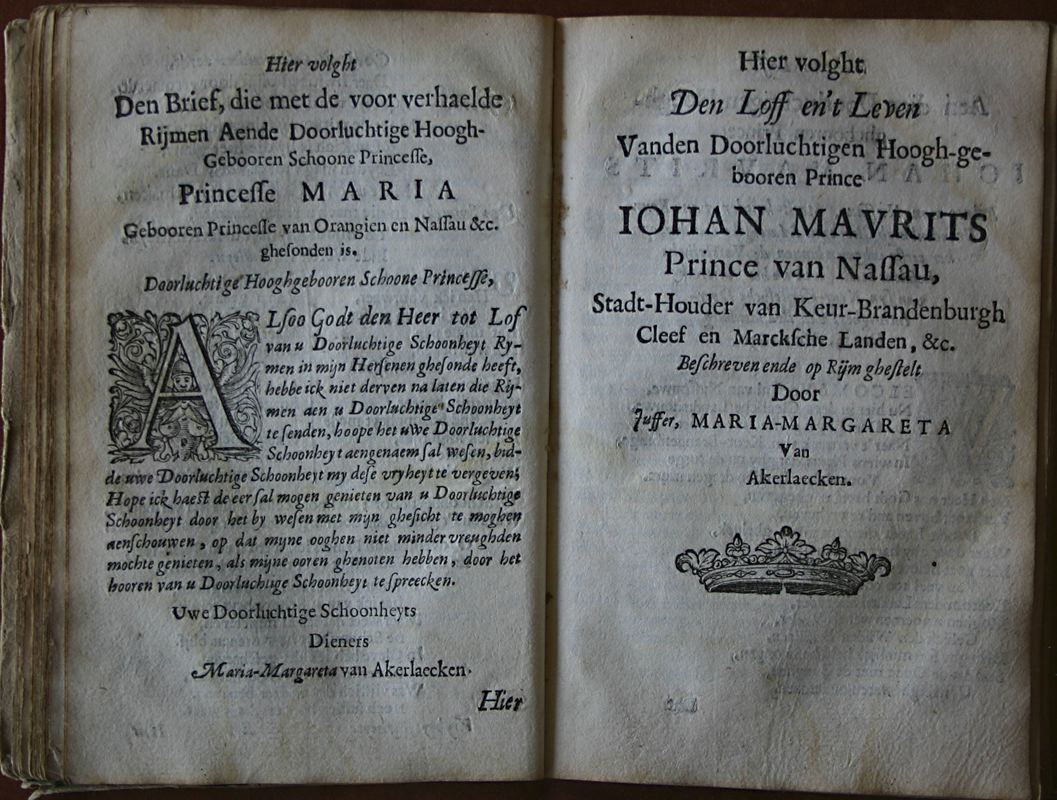 Hier volght
Den Brief, die met de voor verhaelde
Rijmen Aende Doorluchtige Hoogh-
Gebooren Schoone Princesse,
Princesse MARIA
Gebooren Princesse van Orangien en Nassau &c.
ghesonden is.
Doorluchtige Hooghgebooren Schoone Princesse,
ALsoo Godt den Heer tot Lof
van u Doorluchtige Schoonheyt Ry-
men in mijn Hersenen ghesonde heeft,
hebbe ick niet derven na laten die Rij-
men aen u Doorluchtige Schoonheyt
te senden, hoope het uwe Doorluchtige
Schoonheyt aengenaem sal wesen, bid-
de uwe Doorluchtige Schoonheyt my dese vryheyt te vergeven;
Hope ick haest de eer sal mogen genieten van u Doorluchtige
Schoonheyt door het by wesen met mijn ghesicht te moghen
aenschouwen, op dat mijne ooghen niet minder vreughden
mochte genieten, als mijne ooren ghenoten hebben, door het
hooren van u Doorluchtige Schoonheyt te spreecken.
Uwe Doorluchtige Schoonheyts
Dieners
Maria-Margareta van Akerlaecken.
Hier
Hier volght
Den Loff en't Leven
Vanden Doorluchtigen Hoogh-ge-
booren Prince
IOHAN MAVRITS
Prince van Nassau,
Stadt-Houder van Keur-Brandenburgh
Cleef en Marcksche Landen, &c.
Beschreven ende op Rijm ghestelt
Door
Juffer, MARIA-MARGARETA
Van
Akerlaecken.